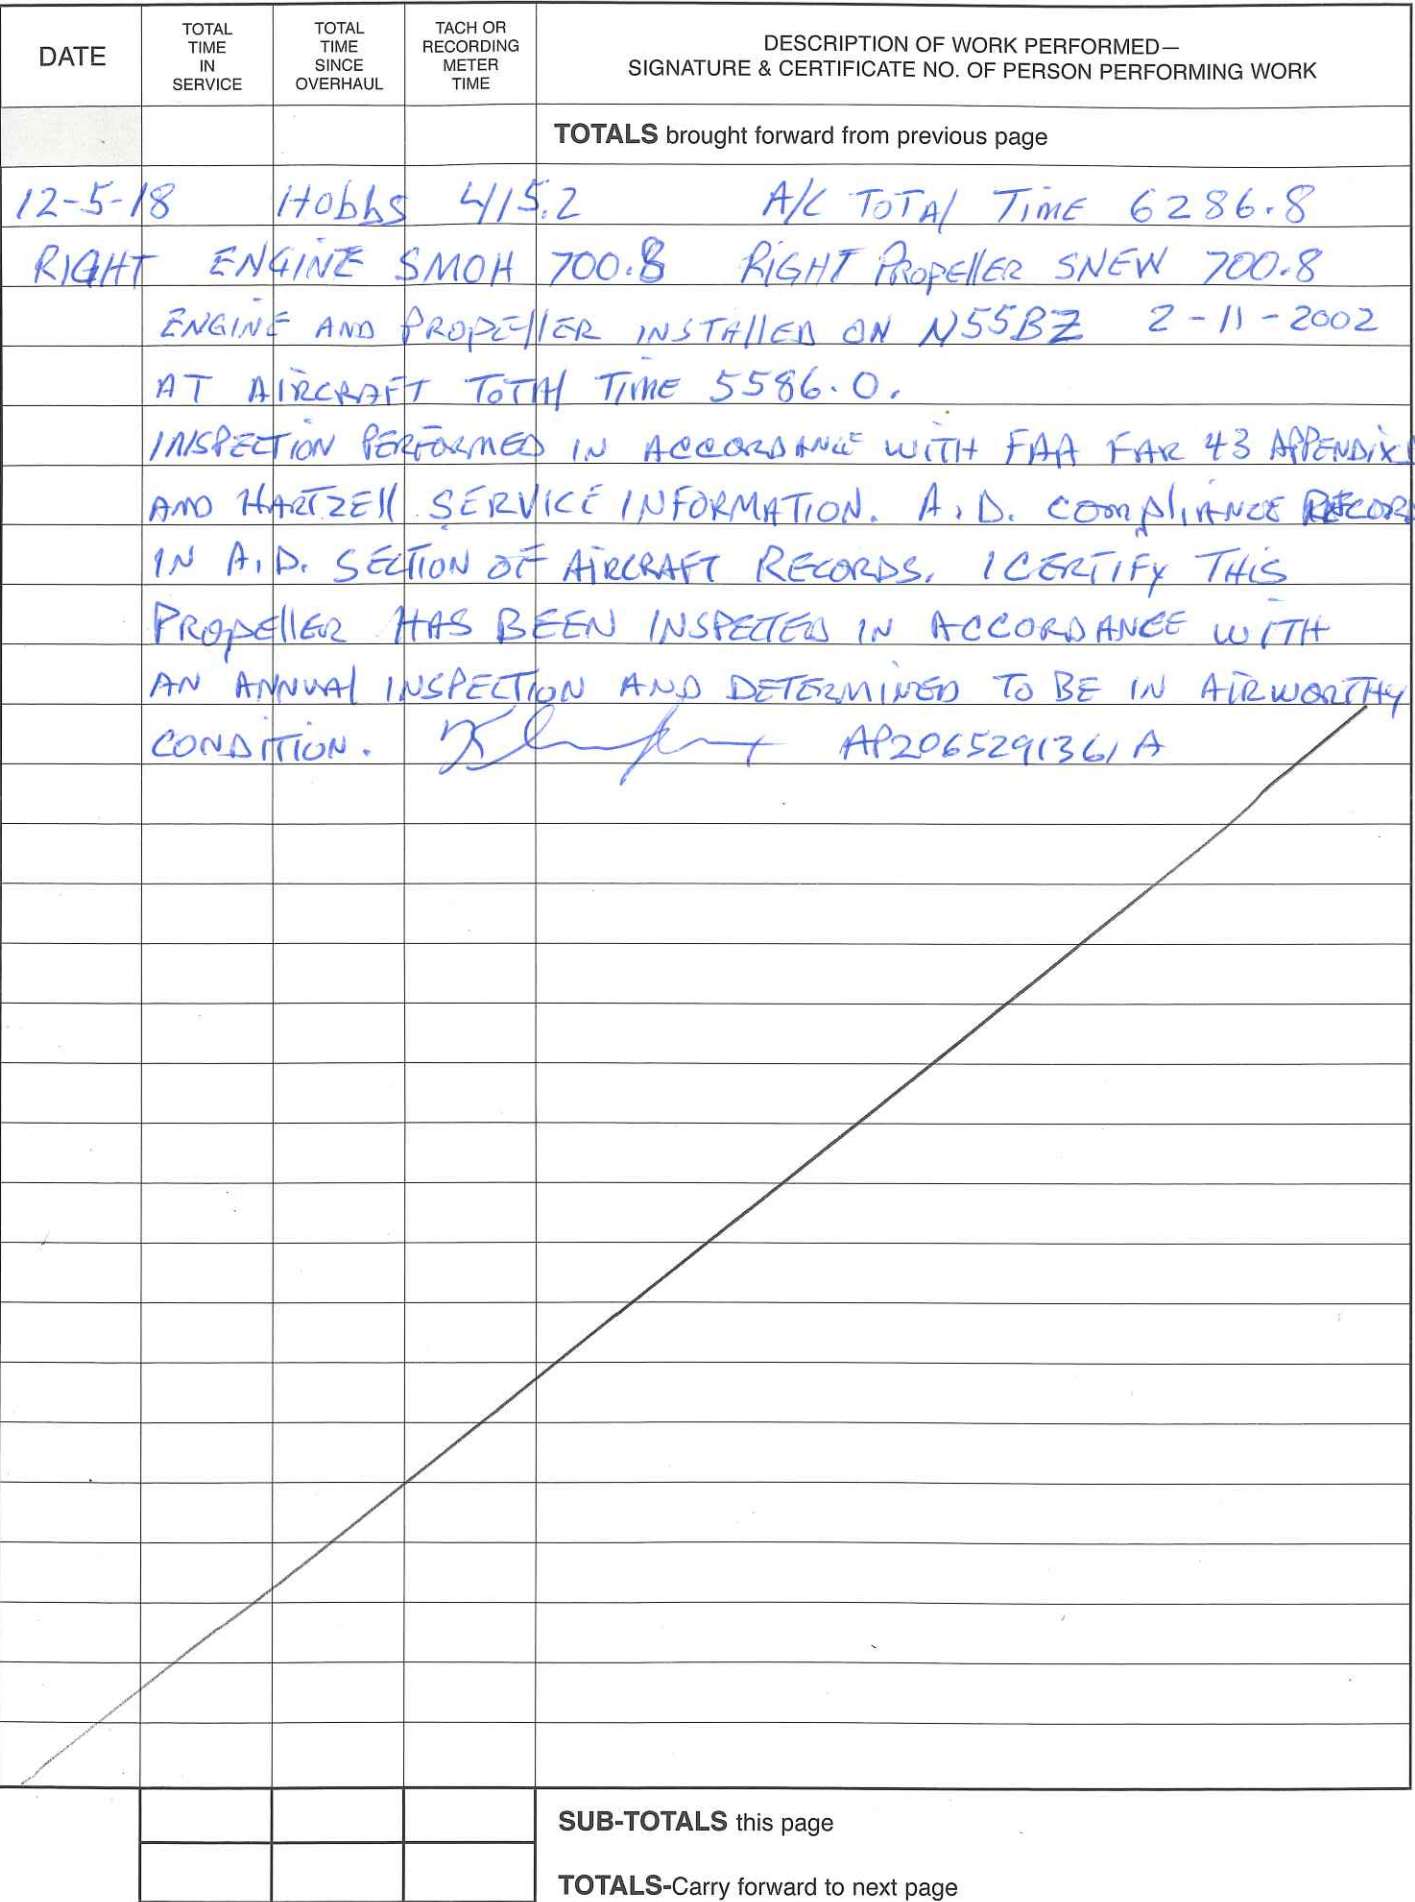 DATE
TOTAL TIME IN SERVICE
TOTAL TIME SINCE OVERHAUL
TACH OR RECORDING METER TIME
DESCRIPTION OF WORK PERFORMED—
SIGNATURE & CERTIFICATE NO. OF PERSON PERFORMING WORK
TOTALS brought forward from previous page
12-5-18 Hobbs 415.2 A/C TOTAL TIME 6286.8
RIGHT ENGINE SMOH 700.8 RIGHT PROPELLER SNEW 700.8
ENGINE AND PROPELLER INSTALLED ON N55BZ 2-11-2002
AT AIRCRAFT TOTAL TIME 5586.0.
INSPECTION PERFORMED IN ACCORDANCE WITH FAA FAR 43 APPENDIX
AND HARTZELL SERVICE INFORMATION. A.D. COMPLIANCE RECOR
IN A.D. SECTION OF AIRCRAFT RECORDS. I CERTIFY THIS
PROPELLER HAS BEEN INSPECTED IN ACCORDANCE WITH
AN ANNUAL INSPECTION AND DETERMINED TO BE IN AIRWORTHY
CONDITION. AP2065291361A
SUB-TOTALS this page
TOTALS-Carry forward to next page